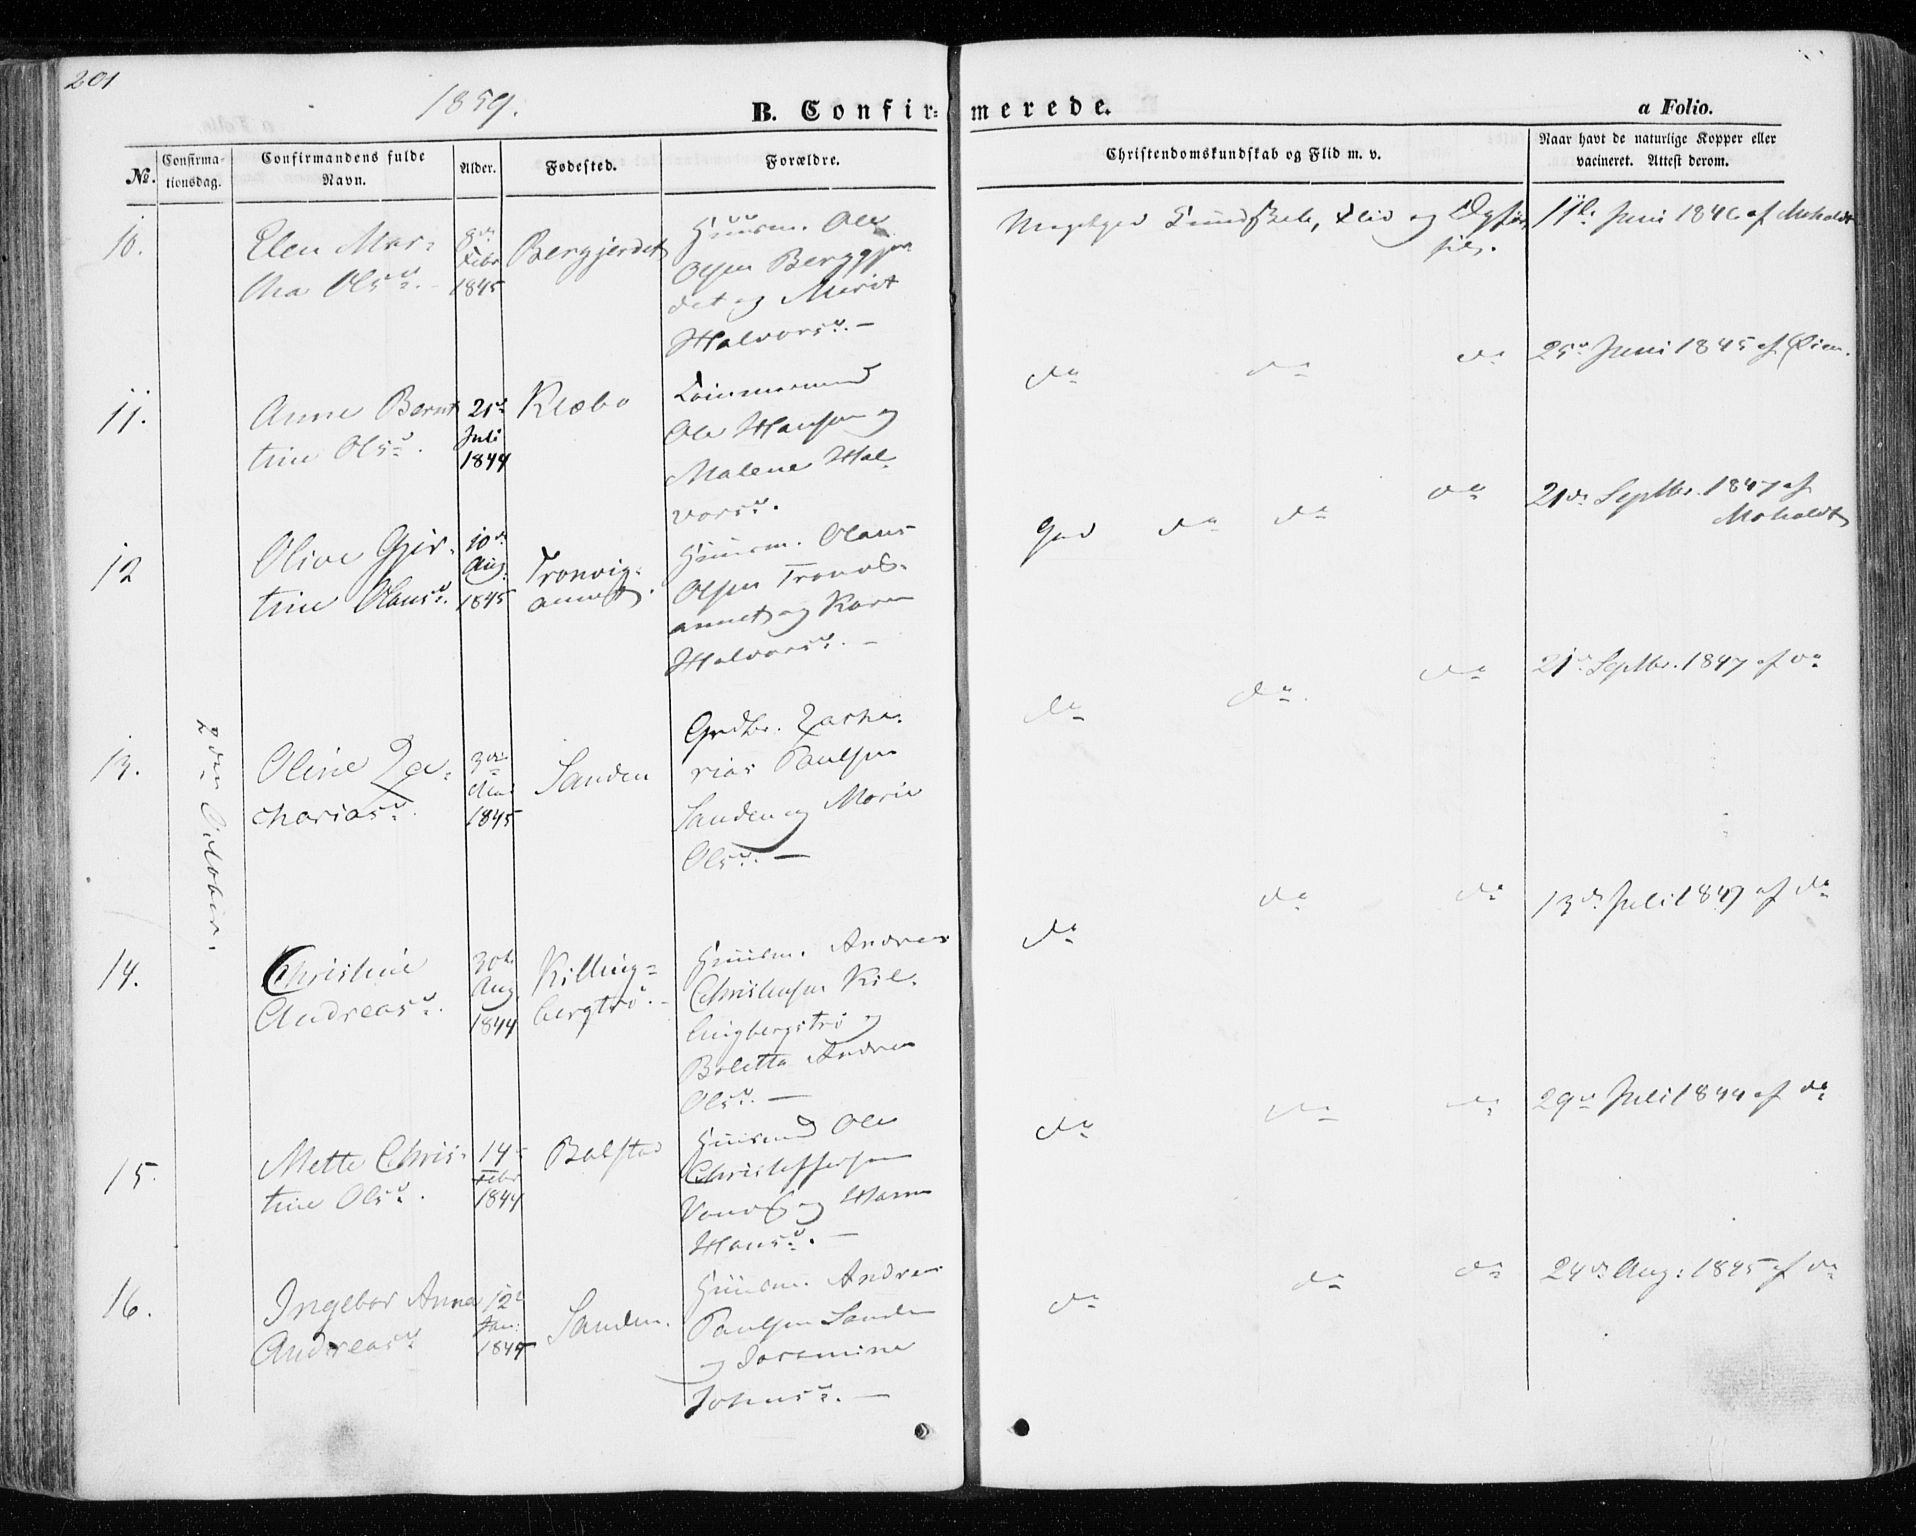 201
1859.
B. Confir-merede.
a Folio.
No.
Confirma-
tionsdag.
Confirmandens fulde
Navn.
Alder.
Fødested.
Forældre.
Christendomskundskab og Flid m. v.
Naar havt de naturlige Kopper eller
vacineret. Attest derom.
2den October.
10.
Elen Mar-
tha Olsd.
Febr
1845
Bergjerdet
Huusm. Ole
Olsen Berggjer-
det og Marit
Halvorsd. —
Kundskab, Flid og
Juni 1846 af Moholdt
11.
Anne Bernt
tine Olsd.
21d
Juli
1844
Klæbo
Ole Hansen og
Malene Hal-
vorsd.
do do do
25d Juni 1845 af
12
Olive Gjer-
tine Olausd.
10d
Aug.
1845
Tronvig-
annet.
Huusm. Olaus
Olsen
annet og Karen
Halvorsd. —
God do do do
21d Septbr. 1847 af
Moholdt
13.
Oline Za-
chariasd.
3d
1845
Sanden
Grdbr. Zacha-
rias Paulsen
Sanden og Marie
Olsd. —
do do do
21d Septbr. 1847 af do
14.
Christine
Andreasd.
30d
Aug.
1844
Killing-
bergtrø. -
Huusm. Andreas
Christensen Kil-
lingbergstrø og
Boletta Andrea
Olsd. —
do do do
13d Juli 1847 af do
15.
Mette Chris-
tine Olsd.
14d
Febr
1844
Balstad
Huusmd Ole
Christoffersen
og Hanna
Hansd. —
do do do
29d Juli 1844 af do
16.
Ingebor Anna
Andreasd
12d
Jan:
1845
Sanden.
Huusm. Andreas
Paulsen Sanden
og
Johnsd. —
do do do
24d Aug: 1845 af do